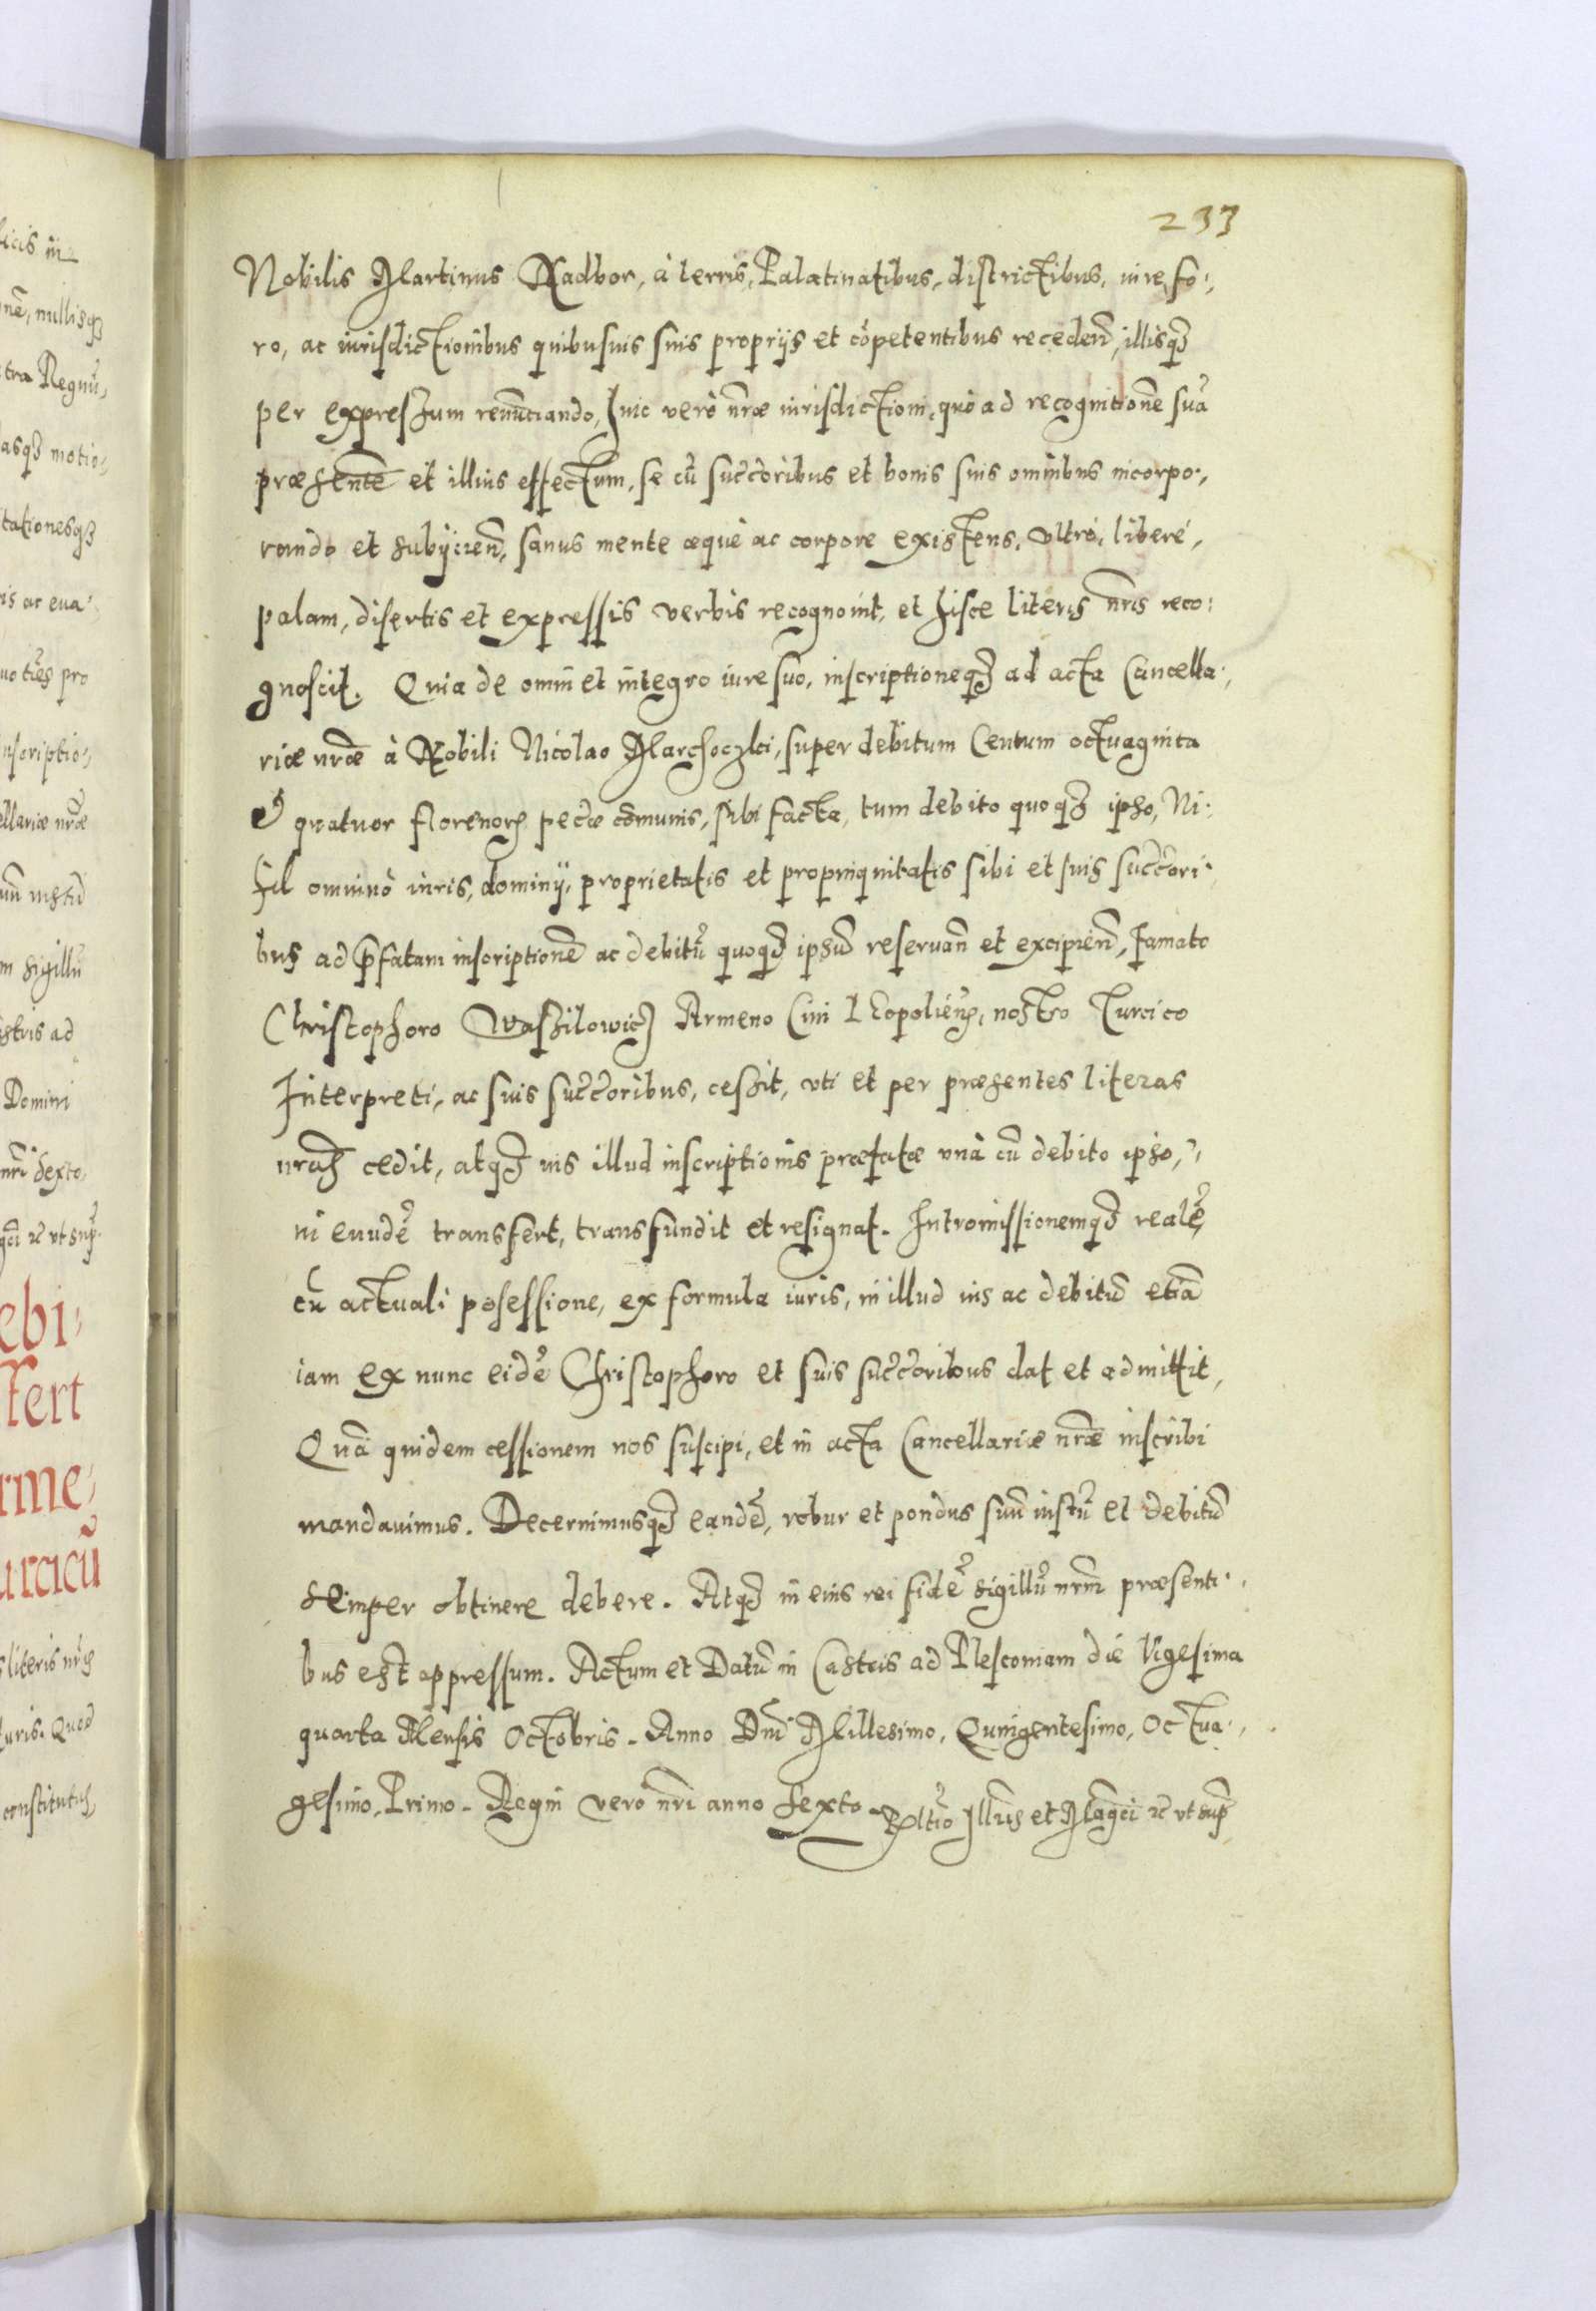 233
Nobilis Martinus Nadbor, à terris, Palatinatibus, districtibus, iure, fo:,
ro, ac iurisdictionibus quibusuis suis proprijs et cõpetentibus recedeñ, illisq3
per expressum renũtiando, huic verò nr̃æ iurisdictioni, quò ad recognitionẽ suã
præsentẽ et illius effectum, se cũ succ̃c̃oribus et bonis suis omnibus incorpo:,
rando et subijcieñ, sanus mente æquè ac corpore existens, vltrò, liberè,
palam, disertis et expressis verbis recognouit, et hisce literis nr̃is reco:
gnoscit. Quia de omni et integro iure suo, inscriptioneq3 ad acta Cancella:,
riæ nr̃æ à Nobili Nicolao Marchoczki, super debitum Centum octuaginta
& quatuor florenor pec̃æ cõmunis, sibi facta, tum debito quoq3 ipso, Ni:
hil omninò iuris, dominij, proprietatis et propinquitatis sibi et suis succ̃c̃ori:
bus ad p̃fatam inscriptionẽ ac debitũ quoq3 ipsũ reseruañ et excipieñ, Famato
Christophoro Waszilowicz Armeno Ciui Leopolieñ, nostro Turcico
Interpreti, ac suis succ̃c̃oribus, cessit, vti et per præsentes literas
nr̃as cedit, atq3 ius illud inscriptionis præfatæ vnà cũ debito ipso,
in eundẽ transfert, transfundit et resignat. Intromissionemq3 realẽ,
cũ actuali posessione, ex formula iuris, in illud ius ac debitũ etiã
iam ex nunc eidẽ Christophoro et suis succ̃c̃oribus dat et admittit,
Quã quidem cessionem nos suscipi, et in acta Cancellariæ nr̃æ inscribi
mandauimus. Decernimusq3 eandẽ, robur et pondus suũ iustũ et debitũ
semper obtinere debere. Atq3 in eius rei fidẽ sigillũ nr̃m præsenti:,
bus est appressum. Actum et Datũ in Castris ad Plescouiam diè Vigesima
quarta Mensis Octobris. Anno Dñi Millesimo, Quingentesimo, Octua:,
gesimo, Primo. Regni vero nr̃i anno Sexto. Rltĩo Illr̃is et Mag̃ci ꝛc vt sup̃